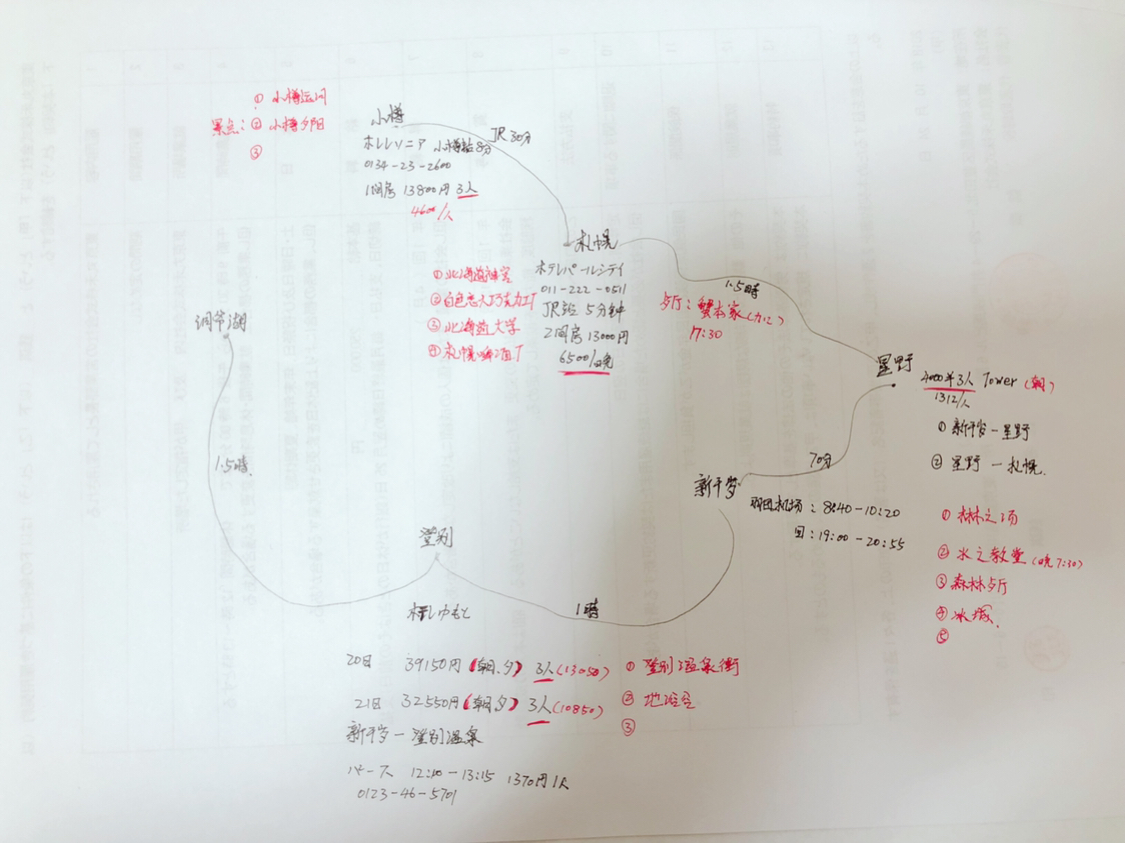 ① 小樽运河
景点：② 小樽夕阳
③
小樽
JR 30分
ホテルソニア 小樽站8分
0134-23-2600
1间房 13800円 3人
4600/人
札幌
ホテルパールシティ
011-222-0511
JR站 5分钟
2间房 13000円
6500/晚
① 北海道神宮
② 白色恋人巧克力工厂
③ 北海道大学
④ 札幌啤酒厂
1.5時
夕厅：蟹本家
17:30
星野
4000半3人 Tower (朝)
1312/人
① 新千岁-星野
② 星野 - 札幌.
70分
新千岁
羽田机场：8:40-10:20
回：19:00-20:55
① 森林之汤
② 水之教堂 (晚7:30)
③ 森林夕厅
④ 冰城.
⑤
洞爷湖
1.5時
登别
1時
ホテルゆもと
20日 39150円 (朝.夕) 3人 (13050)
21日 32550円 (朝夕) 3人 (10850)
新千岁 - 登别温泉
12:10-13:15 1370円1人
0123-46-5701
① 登别温泉街
② 地狱谷
③